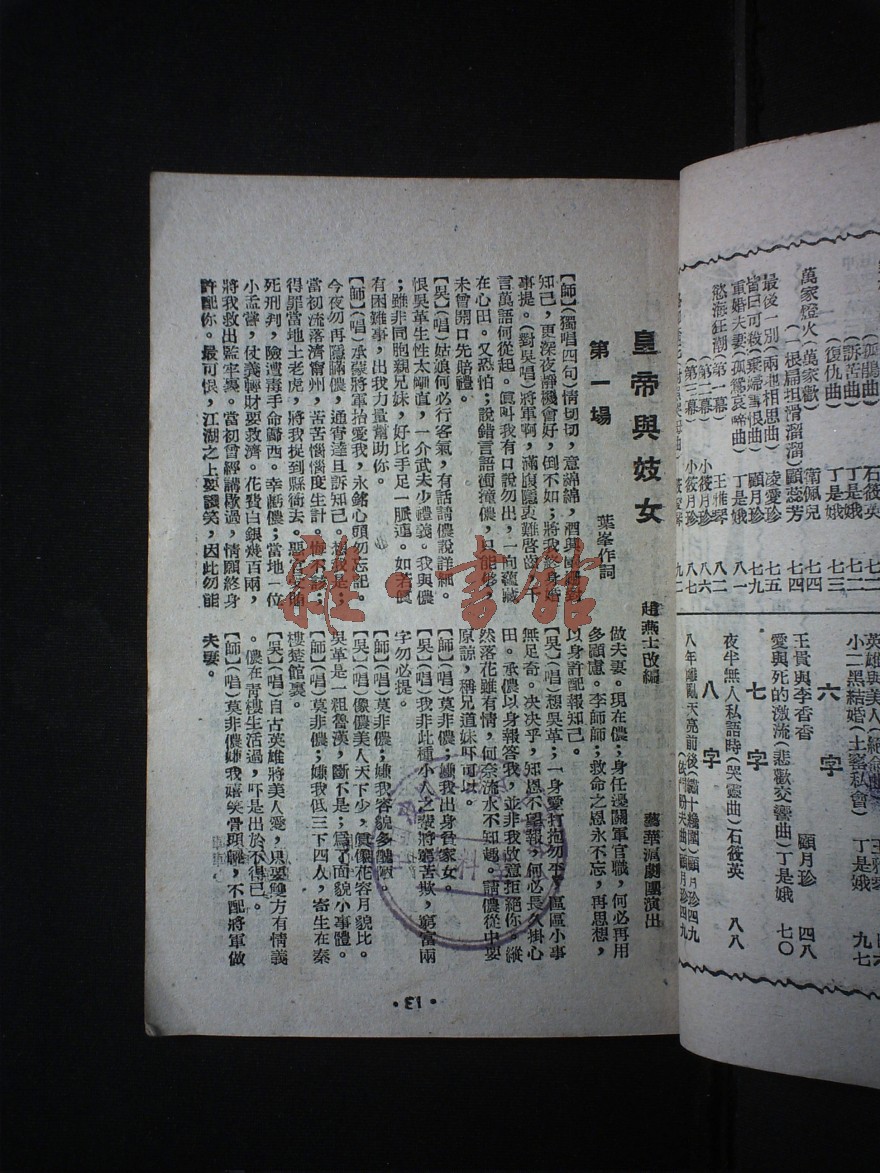 皇帝與妓女
葉峯作詞
趙燕士改編
藝華滬劇團演出
第一場
【師】(獨唱四句)情切切，意綿綿，酒興
知己，更深夜靜機會好，倒不如；將我終身婚
事提。(對吳唱)將軍啊，滿腹隱衷難啓齒，千
言萬語何從起。眞叫我有口說勿出，一向蘊藏
在心田。又恐怕；說錯言語衝撞儂，只能够，
未曾開口先賠禮。
【吳】(唱)姑娘何必行客氣，有話請儂說詳細。
恨吳革生性太剛直，一介武夫少禮義。我與儂
；雖非同胞親兄妹，好比手足一脈連。如若儂
有困難事，出我力量幫助你。
【師】(唱)承蒙將軍抬愛我，永銘心頭勿忘記。
今夜勿再隱瞞儂，通宵達旦訴知己。想我是；
當初流落濟甯州，苦苦惱惱度生計。悔不該；
得罪當地土老虎，將我捉到縣衙去。惡官受賄
死刑判，險遭毒手命歸西。幸虧儂；當地一位
小孟嘗，仗義輕財要救濟。花費白銀幾百兩，
將我救出監牢裏。當初曾經講歡過，情願終身
許配你。最可恨，江湖之上要譏笑，因此勿能
做夫妻。現在儂；身任邊關軍官職，何必再用
多顧慮。李師師；救命之恩永不忘，再思想，
以身許配報知己。
【吳】(唱)想吳革；一身愛打抱勿平，區區小事
無足奇。决决乎，知恩不望報，何必長久掛心
田。承儂以身報答我，並非我故意拒絕你。縱
然落花雖有情，何奈流水不知趣。請儂從中要
原諒，稱兄道妹吓可以。
【師】(唱)莫非儂；嫌我出身貧家女。
【吳】(唱)我非此種小人之輩將窮苦欺，窮富兩
字勿必提。
【師】(唱)莫非儂；嫌我容貌多醜陋。
【吳】(唱)像儂美人天下少，眞像花容月貌比。
吳革是一粗魯漢，斷不是；爲了面貌小事體。
【師】(唱)莫非儂；嫌我低三下四人，寄生在秦
樓楚館裏。
【吳】(唱)自古英雄將美人愛，只要雙方有情義
。儂在青樓生活過，吓是出於不得已。
【師】(唱)莫非儂嫌我嬉笑骨頭輕，不配將軍做
夫妻。
·13·
(孤鵑曲)
石筱英
七一
(訴苦曲)
丁是娥
七二
(復仇曲)
丁是娥
七三
萬家燈火(萬家歡)
衛佩兒
七四
(一根扁担滑溜溜)顧蕊芳
七四
最後一別(兩地相思曲)
凌愛珍
七五
皆曰可殺(棄婦雪恨曲)
顧月珍
七九
重婚夫妻(孤鸞哀啼曲)
丁是娥
八一
慾海狂潮(第一幕)
王雅琴
八二
(第二幕)
小筱月珍
八六
(第三幕)
小筱月珍
八七
九二
英雄與美人
王雅琴
小二黑結婚(土窰私會)
丁是娥
九七
六字
王貴與李香香
顧月珍
四八
愛與死的激流(悲歡交響曲)丁是娥
七〇
七字
夜半無人私語時(哭靈曲)石筱英
八八
八字
八年離亂天亮前後
顧月珍
四九
顧月珍
四九
雜·書館